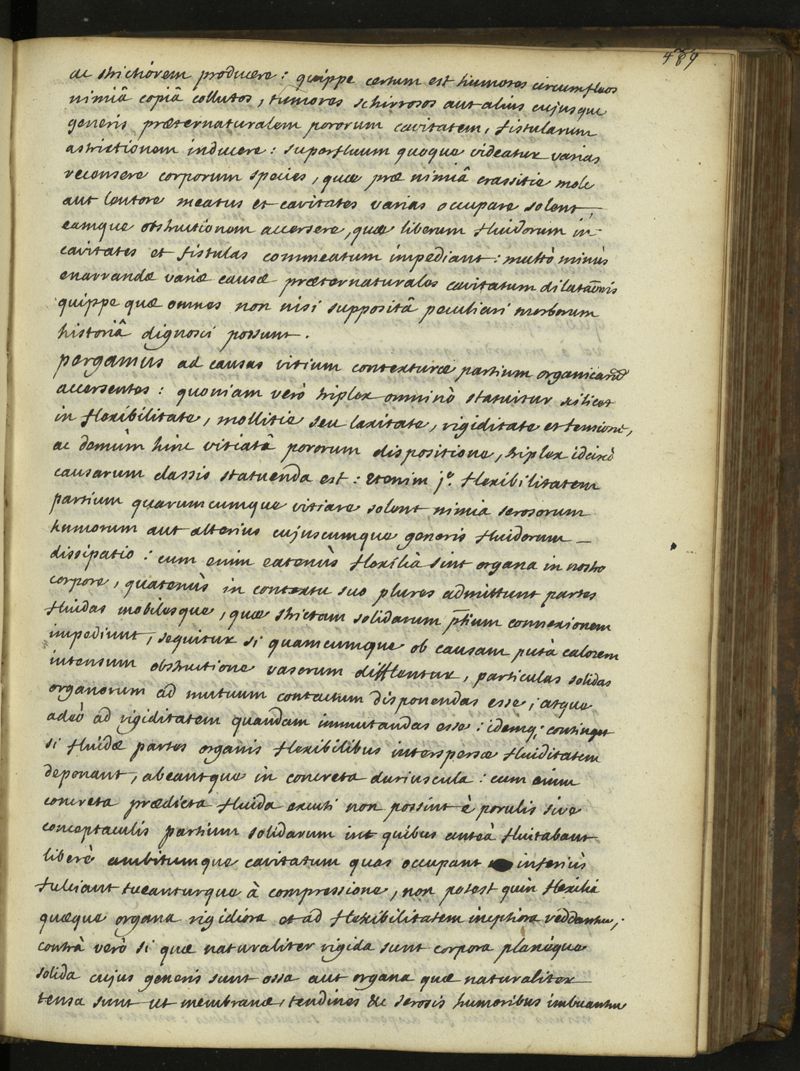 489
ac strictiorem producere : quippe certum est humores circumfluos
nimiâ copiâ collutos, tumores schirrosos aut alius cujusque
generis præternaturalem pororum cavitatem, fistularum
astrictionem inducere : superfluum quoque videatur varias
recensere corporum species, quæ præ nimiâ crassitie mole
aut lentore meatus et cavitates varias occupare solent,
eamque obstructionem accersere, quæ liberum fluidorum in
cavitates et fistulas commeatum impediant : multò minùs
enarrandæ variæ causæ præternaturales cavitatum dilataōnis
quippe quæ omnes non nisi suppositâ peculiari morborum
historiâ dignosci possunt.
pergamus ad causas vitium contexturæ partium organicarū
accersentes : quoniam verò triplex omninò statuitur scilicet
in flexibilitate, mollitie seu laxitate, rigiditate et tensione,
ac demùm hinc vitiatâ pororum dispositione, triplex idcircò
causarum classis statuenda est : etenim jº. flexibilitatem
partium quarumcumque vitiare solent nimia serosorum
humorum aut alterius cujuscumque generis fluidorum
dissipatio : cum enim eatenùs flexilia sint organa in nostro
corpore, quatenùs in contextu suo plures admittunt partes
fluidas mobilesque, quæ strictam solidarum ptium connexionem
impediunt, sequitur si quamcumque ob causam putà calorem
intensum obstructione vasorum difflentur, particulas solidas
organorum ad mutuum contactum disponendas esse ; atque
adeò ad rigiditatem quandam immutandas esse ; idemq; continget
si fluidæ partes organis flexibilibus interspersæ fluiditatem
deponant, abeantque in concreta duriuscula : cum enim
concreta prædicta fluida excuti non possint è porulis sive
conceptaculis partium solidarum in quibus anteà fluitabant
liberè ambitumque cavitatum quas occupant interiùs
fulciant tueanturque à compressione, non potest quin flexilia
quæque organa rigidiora et ad flexibilitatem ineptiora reddantur ;
contrà verò si quæ naturaliter rigida sunt corpora planèque
solida cujus generis sunt ossa aut organa quæ naturaliter
tensa sunt ut membranæ, tendines &c serosis humoribus imbuantur